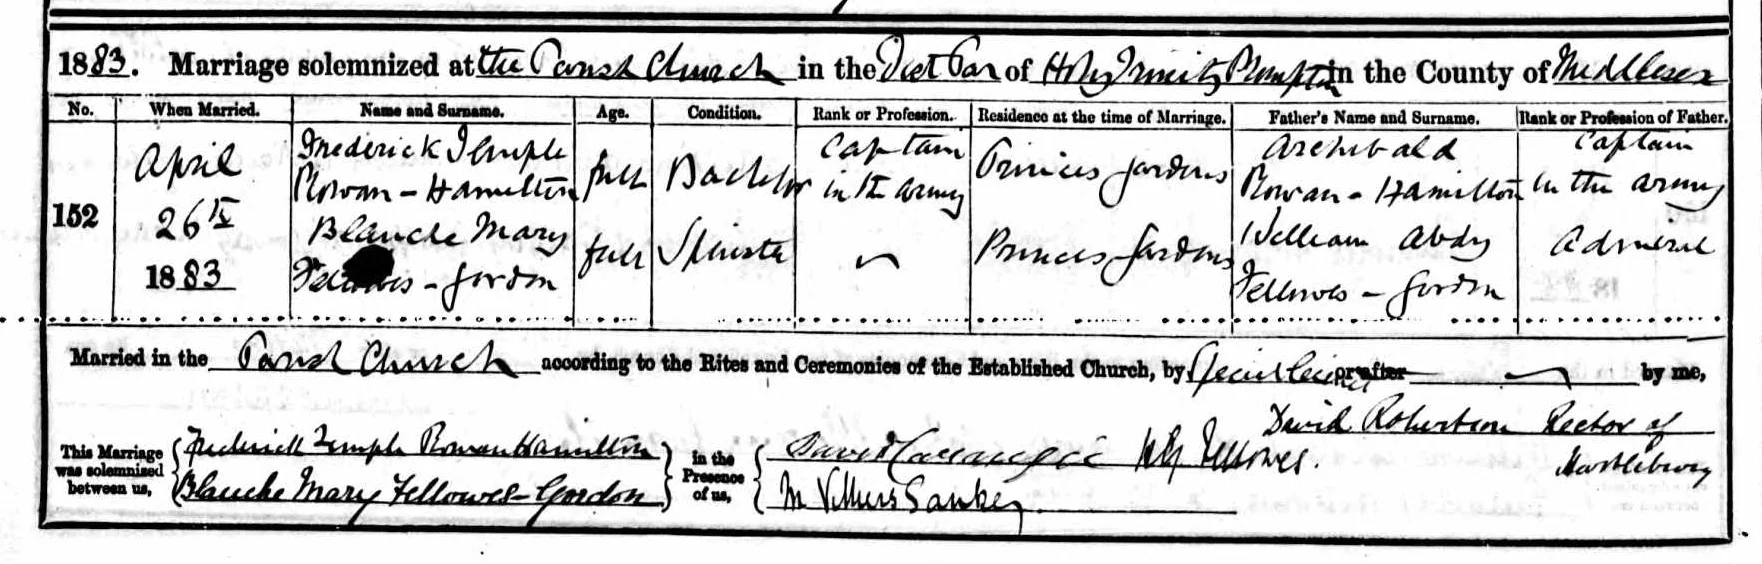 1883. Marriage solemnized at the Parish Church in the Dist Par of Holy Trinity Brompton in the County of Middlesex
No. When Married. Name and Surname. Age. Condition. Rank or Profession. Residence at the time of Marriage. Father's Name and Surname. Rank or Profession of Father.
152
April
26th
1883
Frederick Temple
Rowan-Hamilton
full
Bachelor
Captain
in the Army
Princes Gardens
Archibald
Rowan-Hamilton
Captain
in the army
Blanche Mary
Fellowes-Gordon
full
Spinster
Princes Gardens
William Abdy
Fellowes-Gordon
Admiral
Married in the Parish Church according to the Rites and Ceremonies of the Established Church, by Special Licence or after by me,
David Robertson Rector of
Hartlebury
This Marriage
was solemnized
between us,
Frederick Temple Rowan Hamilton
Blanche Mary Fellowes-Gordon
in the
Presence
of us,
Fellowes.
M Villiers Sankey.